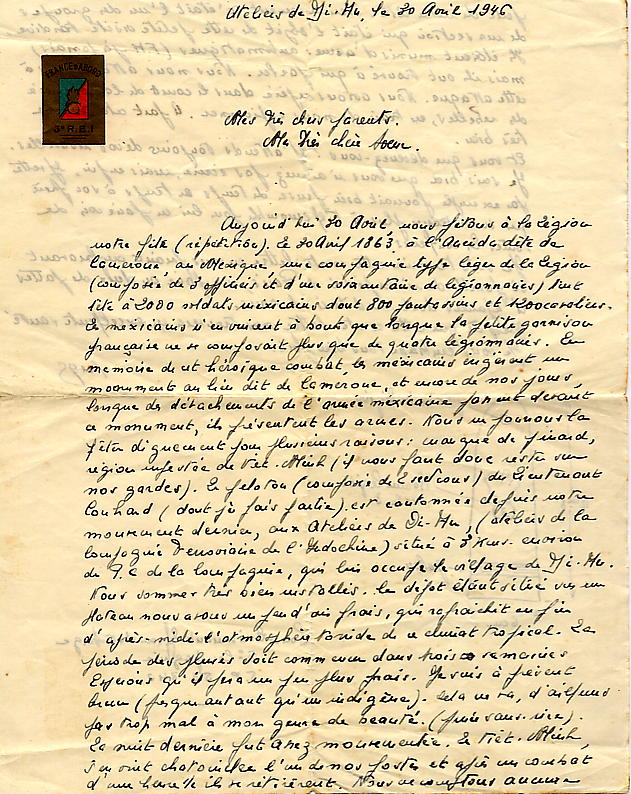 Ateliers de Di-An, le 30 Avril 1946
FRANCE D'ABORD
3e R.E.I
Mes très chers parents.
Ma très chère soeur.
Aujourd'hui 30 Avril, nous fêtons à la Légion
notre fête (répétition). Le 30 Avril 1863 à l'Hacienda dite de
Camerone au Mexique une compagnie type léger de la Légion
(composée de 3 officiers et d'une soixantaine de légionnaires) tint
tête à 2000 soldats mexicains dont 800 fantassins et 1200 cavaliers.
Les mexicains n'en vinrent à bout que lorsque la petite garnison
française ne se composait plus que de quatre légionnaires. En
mémoire de cet héroïque combat, les mexicains érigèrent un
monument au lieu dit de Camerone, et encore de nos jours,
lorsque des détachements de l'armée mexicaine passent devant
ce monument, ils présentent les armes. Nous ne pouvons la
fêter dignement pour plusieurs raisons: manque de pinard,
région infestée de Viet-Minh (il nous faut donc rester sur
nos gardes). Le peloton (composé de 2 sections) du Lieutenant
(dont je fais partie) est cantonné depuis notre
mouvement dernier, aux Ateliers de Di-An, (ateliers de la
Compagnie Ferroviaire de l'Indochine) situé à 3 Kms environ
du P.C de la Compagnie, qui lui occupe le village de Di-An.
Nous sommes très bien installés. Le dépôt étant situé sur un
plateau nous avons un peu d'air frais, qui rafraîchit en fin
d'après-midi l'atmosphère torride de ce climat tropical. La
période des pluies doit commencer dans trois semaines
Espérons qu'il fera un peu plus frais. Je suis à présent
brun (presque autant qu'un indigène). Cela ne va, d'ailleurs
pas trop mal à mon genre de beauté. (puis sans rire).
La nuit dernière fut assez mouvementée. Le Viet-Minh,
s'en vint chatouiller l'un de nos postes et après un combat
d'une heure 1/2 ils se retirèrent. Nous ne comptons aucune